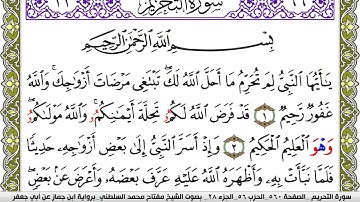 سورة التحريم
بِسْمِ اللَّهِ الرَّحْمَٰنِ الرَّحِيمِ
يَٰأَيُّهَا النَّبِيُّ لِمَ تُحَرِّمُ مَا أَحَلَّ اللَّهُ لَكَ تَبْتَغِي مَرْضَاتَ أَزْوَٰجِكَ وَاللَّهُ
غَفُورٌ رَّحِيمٌ ١ قَدْ فَرَضَ اللَّهُ لَكُمُۥ تَحِلَّةَ أَيْمَٰنِكُمُۥ وَاللَّهُ مَوْلَىٰكُمُۥ
وَهْوَ الْعَلِيمُ الْحَكِيمُ ٢ وَإِذْ أَسَرَّ النَّبِيُّ إِلَىٰ بَعْضِ أَزْوَٰجِهِۦ حَدِيثًا
فَلَمَّا نَبَّأَتْ بِهِۦ وَأَظْهَرَهُ اللَّهُ عَلَيْهِ عَرَّفَ بَعْضَهُۥ وَأَعْرَضَ عَنۢ بَعْضٍ
سورة التحريم الصفحة ٥٦٠ الحزب ٥٦ الجزء ٢٨ بصوت الشيخ مفتاح محمد السلطني برواية ابن جماز عن أبي جعفر